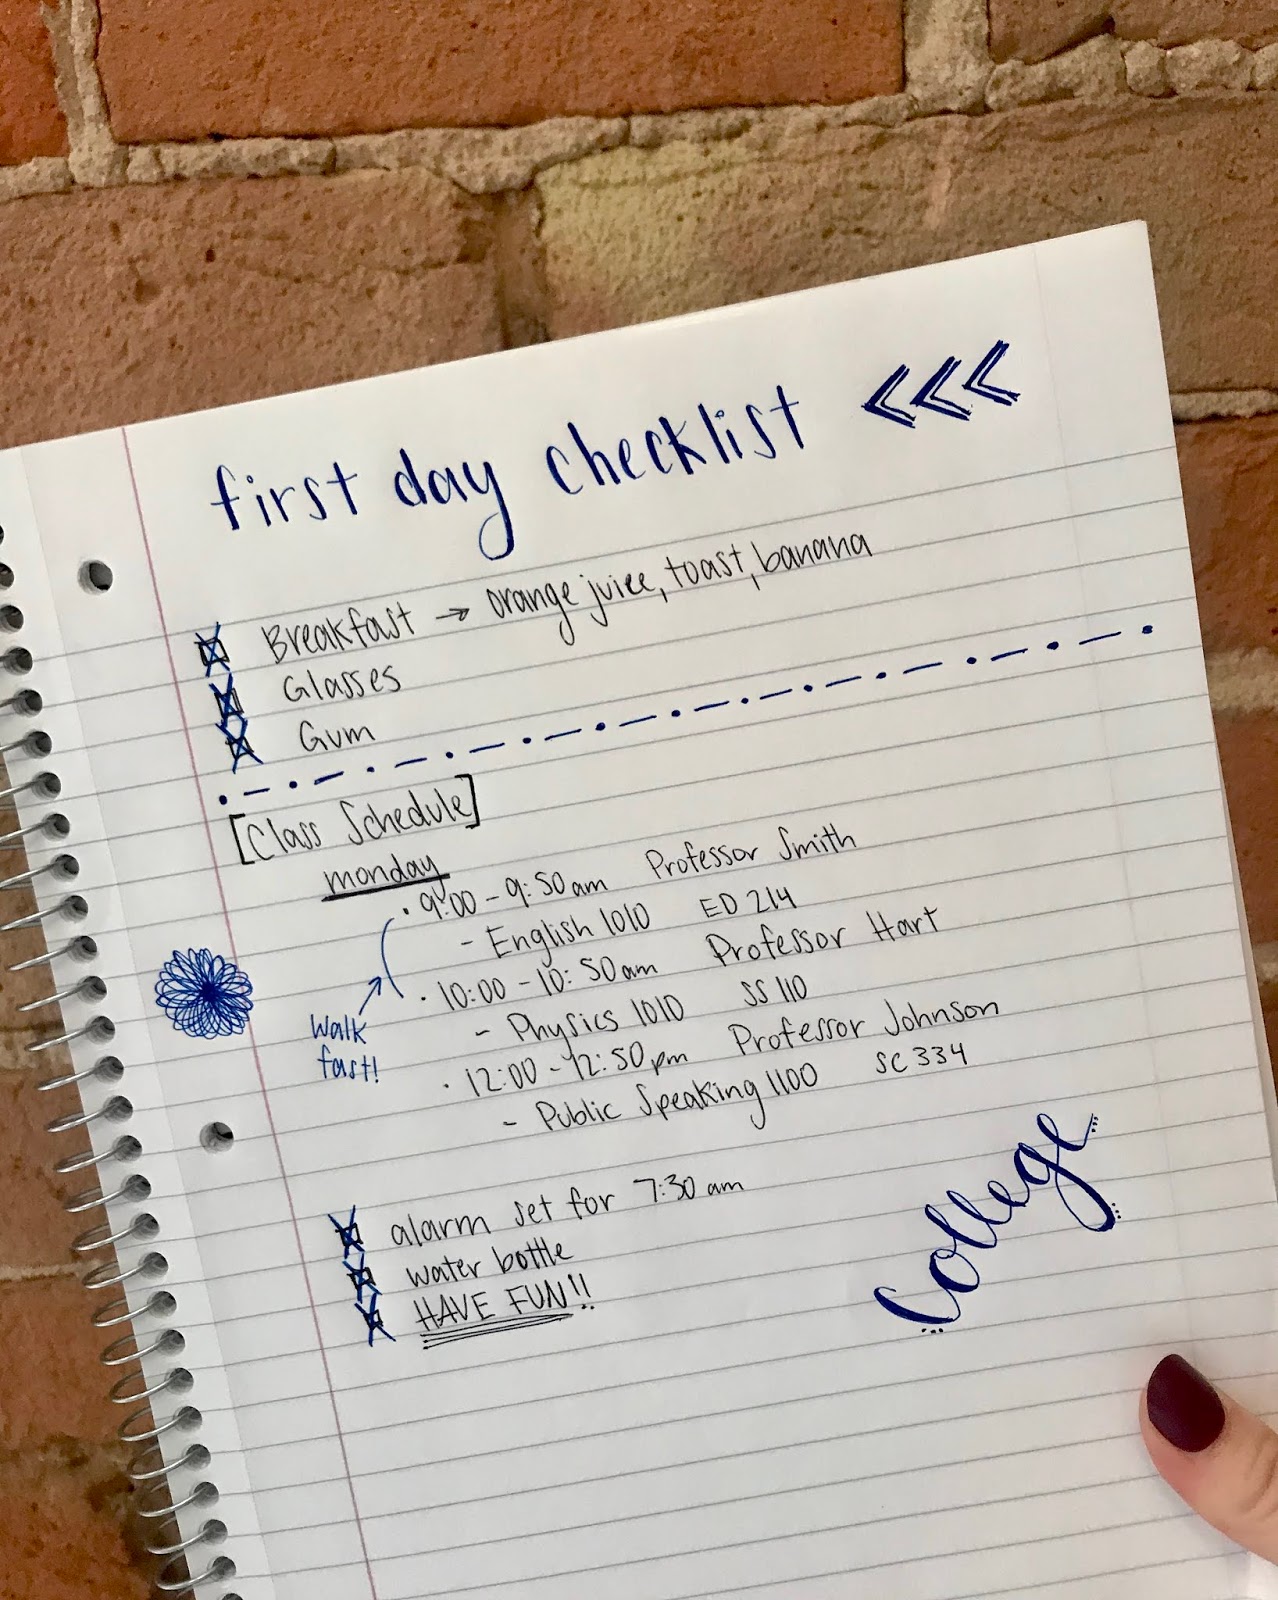 first day checklist <<<
Breakfast → orange juice, toast, banana
Glasses
Gum
[Class Schedule]
monday
• 9:00 - 9:50 am Professor Smith
- English 1010 ED 214
• 10:00 - 10:50 am Professor Hart
- Physics 1010 SS 110
Walk
fast!
• 12:00 - 12:50 pm Professor Johnson
- Public Speaking 1100 SC 334
alarm set for 7:30 am
water bottle
HAVE FUN!!
college